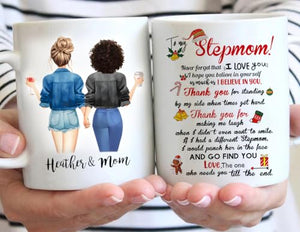 Heather & Mom
To my
Stepmom!
Never forget that I LOVE YOU.
I hope you believe in your self
as much as I BELIEVE IN YOU.
Thank you for standing
by my side when times get hard
Thank you for
making me laugh
when I didn't even want to smile.
If I had a different Stepmom,
I would punch her in the face
AND GO FIND YOU
LOVE. The one
who needs you till the end.